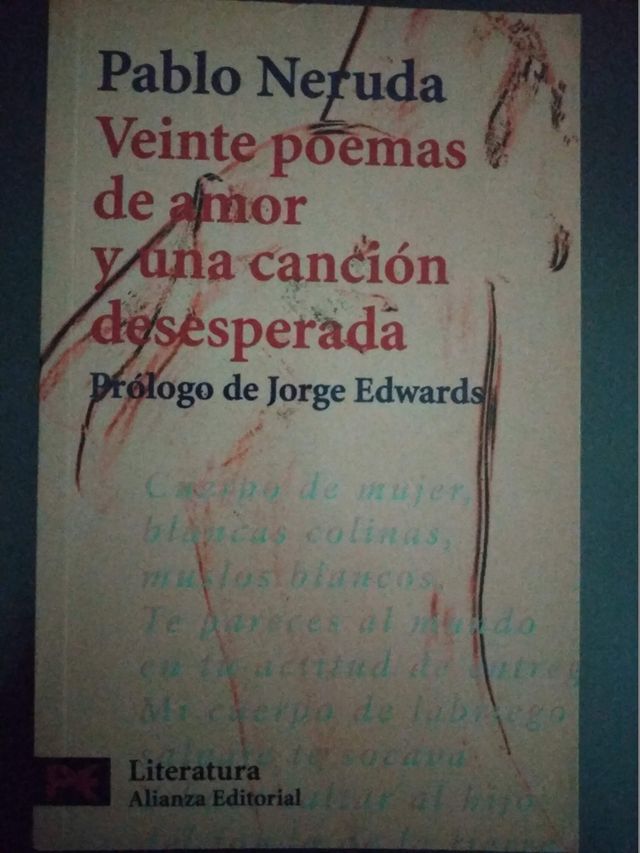 Pablo Neruda
Veinte poemas
de amor
y una canción
desesperada
Prólogo de Jorge Edwards
Cuerpo de mujer,
blancas colinas,
muslos blancos,
Te pareces al mundo
en tu actitud de entreg
Mi cuerpo de labriego
salvaje te socava
Literatura
Alianza Editorial
saltar al hijo